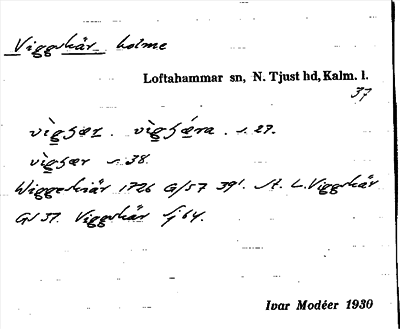 Viggskär holme
Loftahammar sn, N. Tjust hd, Kalm. l.
37
s. 27.
s. 38.
Wiggeskiär 1726 G/57 39¹. St. L. Viggskär
G/37. Viggskär Sj 64.
Ivar Modéer 1930